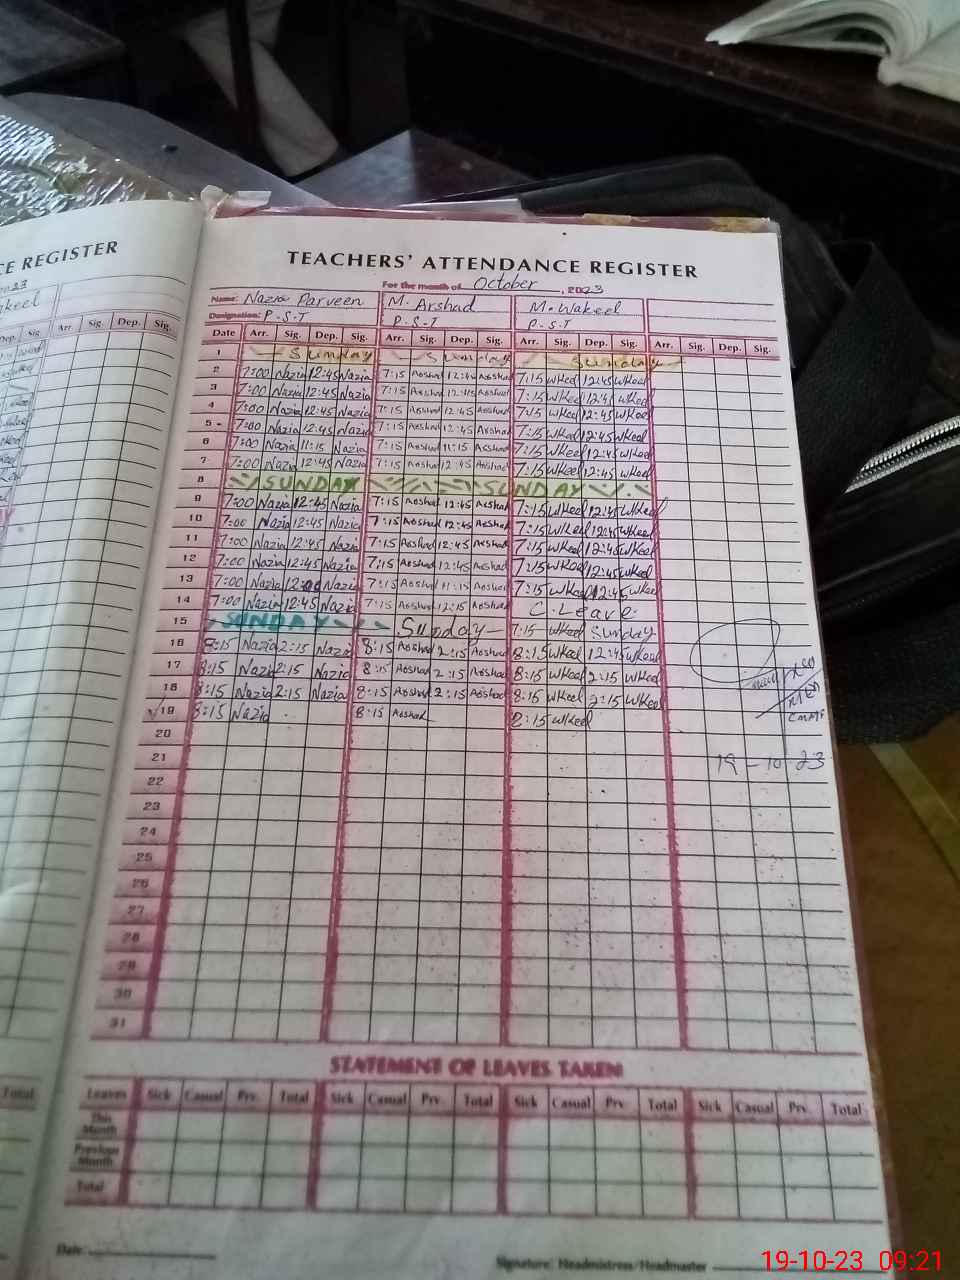 CE REGISTER
TEACHERS' ATTENDANCE REGISTER
For the month of October, 2023
Name: Nazia Parveen M. Arshad M. Wakeel
Designation: P.S.T P.S.T P.S.T
Dep. Sig. Arr. Sig. Dep. Sig.
Date Arr. Sig. Dep. Sig. Arr. Sig. Dep. Sig. Arr. Sig. Dep. Sig. Arr. Sig. Dep. Sig.
1 Sunday Sunday Sunday
2 7:00 Nazia 12:45 Nazia 7:15 Arshad 12:45 Arshad 7:15 WKeel 12:45 WKeel
3 7:00 Nazia 12:45 Nazia 7:15 Arshad 12:45 Arshad 7:15 WKeel 12:45 WKeel
4 7:00 Nazia 12:45 Nazia 7:15 Arshad 12:45 Arshad 7:15 WKeel 12:45 WKeel
5 7:00 Nazia 12:45 Nazia 7:15 Arshad 12:45 Arshad 7:15 WKeel 12:45 WKeel
6 7:00 Nazia 11:15 Nazia 7:15 Arshad 11:15 Arshad 7:15 WKeel 12:45 WKeel
7 7:00 Nazia 12:45 Nazia 7:15 Arshad 12:45 Arshad 7:15 WKeel 12:45 WKeel
8 SUNDAY SUNDAY
9 7:00 Nazia 12:45 Nazia 7:15 Arshad 12:45 Arshad 7:15 WKeel 12:45 WKeel
10 7:00 Nazia 12:45 Nazia 7:15 Arshad 12:45 Arshad 7:15 WKeel 12:45 WKeel
11 7:00 Nazia 12:45 Nazia 7:15 Arshad 12:45 Arshad 7:15 WKeel 12:45 WKeel
12 7:00 Nazia 12:45 Nazia 7:15 Arshad 12:45 Arshad 7:15 WKeel 12:45 WKeel
13 7:00 Nazia Nazia 7:15 Arshad 11:15 Arshad 7:15 WKeel 12:45 WKeel
14 7:00 Nazia 12:45 Nazia 7:15 Arshad 12:15 Arshad C.Leave
15 SUNDAY Sunday 7:15 WKeel Sunday
16 8:15 Nazia 2:15 Nazia 8:15 Arshad 2:15 Arshad 8:15 WKeel 12:45 WKeel
17 8:15 Nazia 2:15 Nazia 8:15 Arshad 2:15 Arshad 8:15 WKeel 2:15 WKeel
18 8:15 Nazia 2:15 Nazia 8:15 Arshad 2:15 Arshad 8:15 WKeel 2:15 WKeel
19 8:15 Nazia 8:15 Arshad 8:15 WKeel
20
21 19-10-23
22
23
24
25
26
27
28
29
30
31
STATEMENT OF LEAVES TAKEN
Total Leaves Sick Casual Prv. Total Sick Casual Prv. Total Sick Casual Prv. Total Sick Casual Prv. Total
This Month
Previous Month
Total
Date:
Signature: Headmistress/Headmaster
19-10-23 09:21